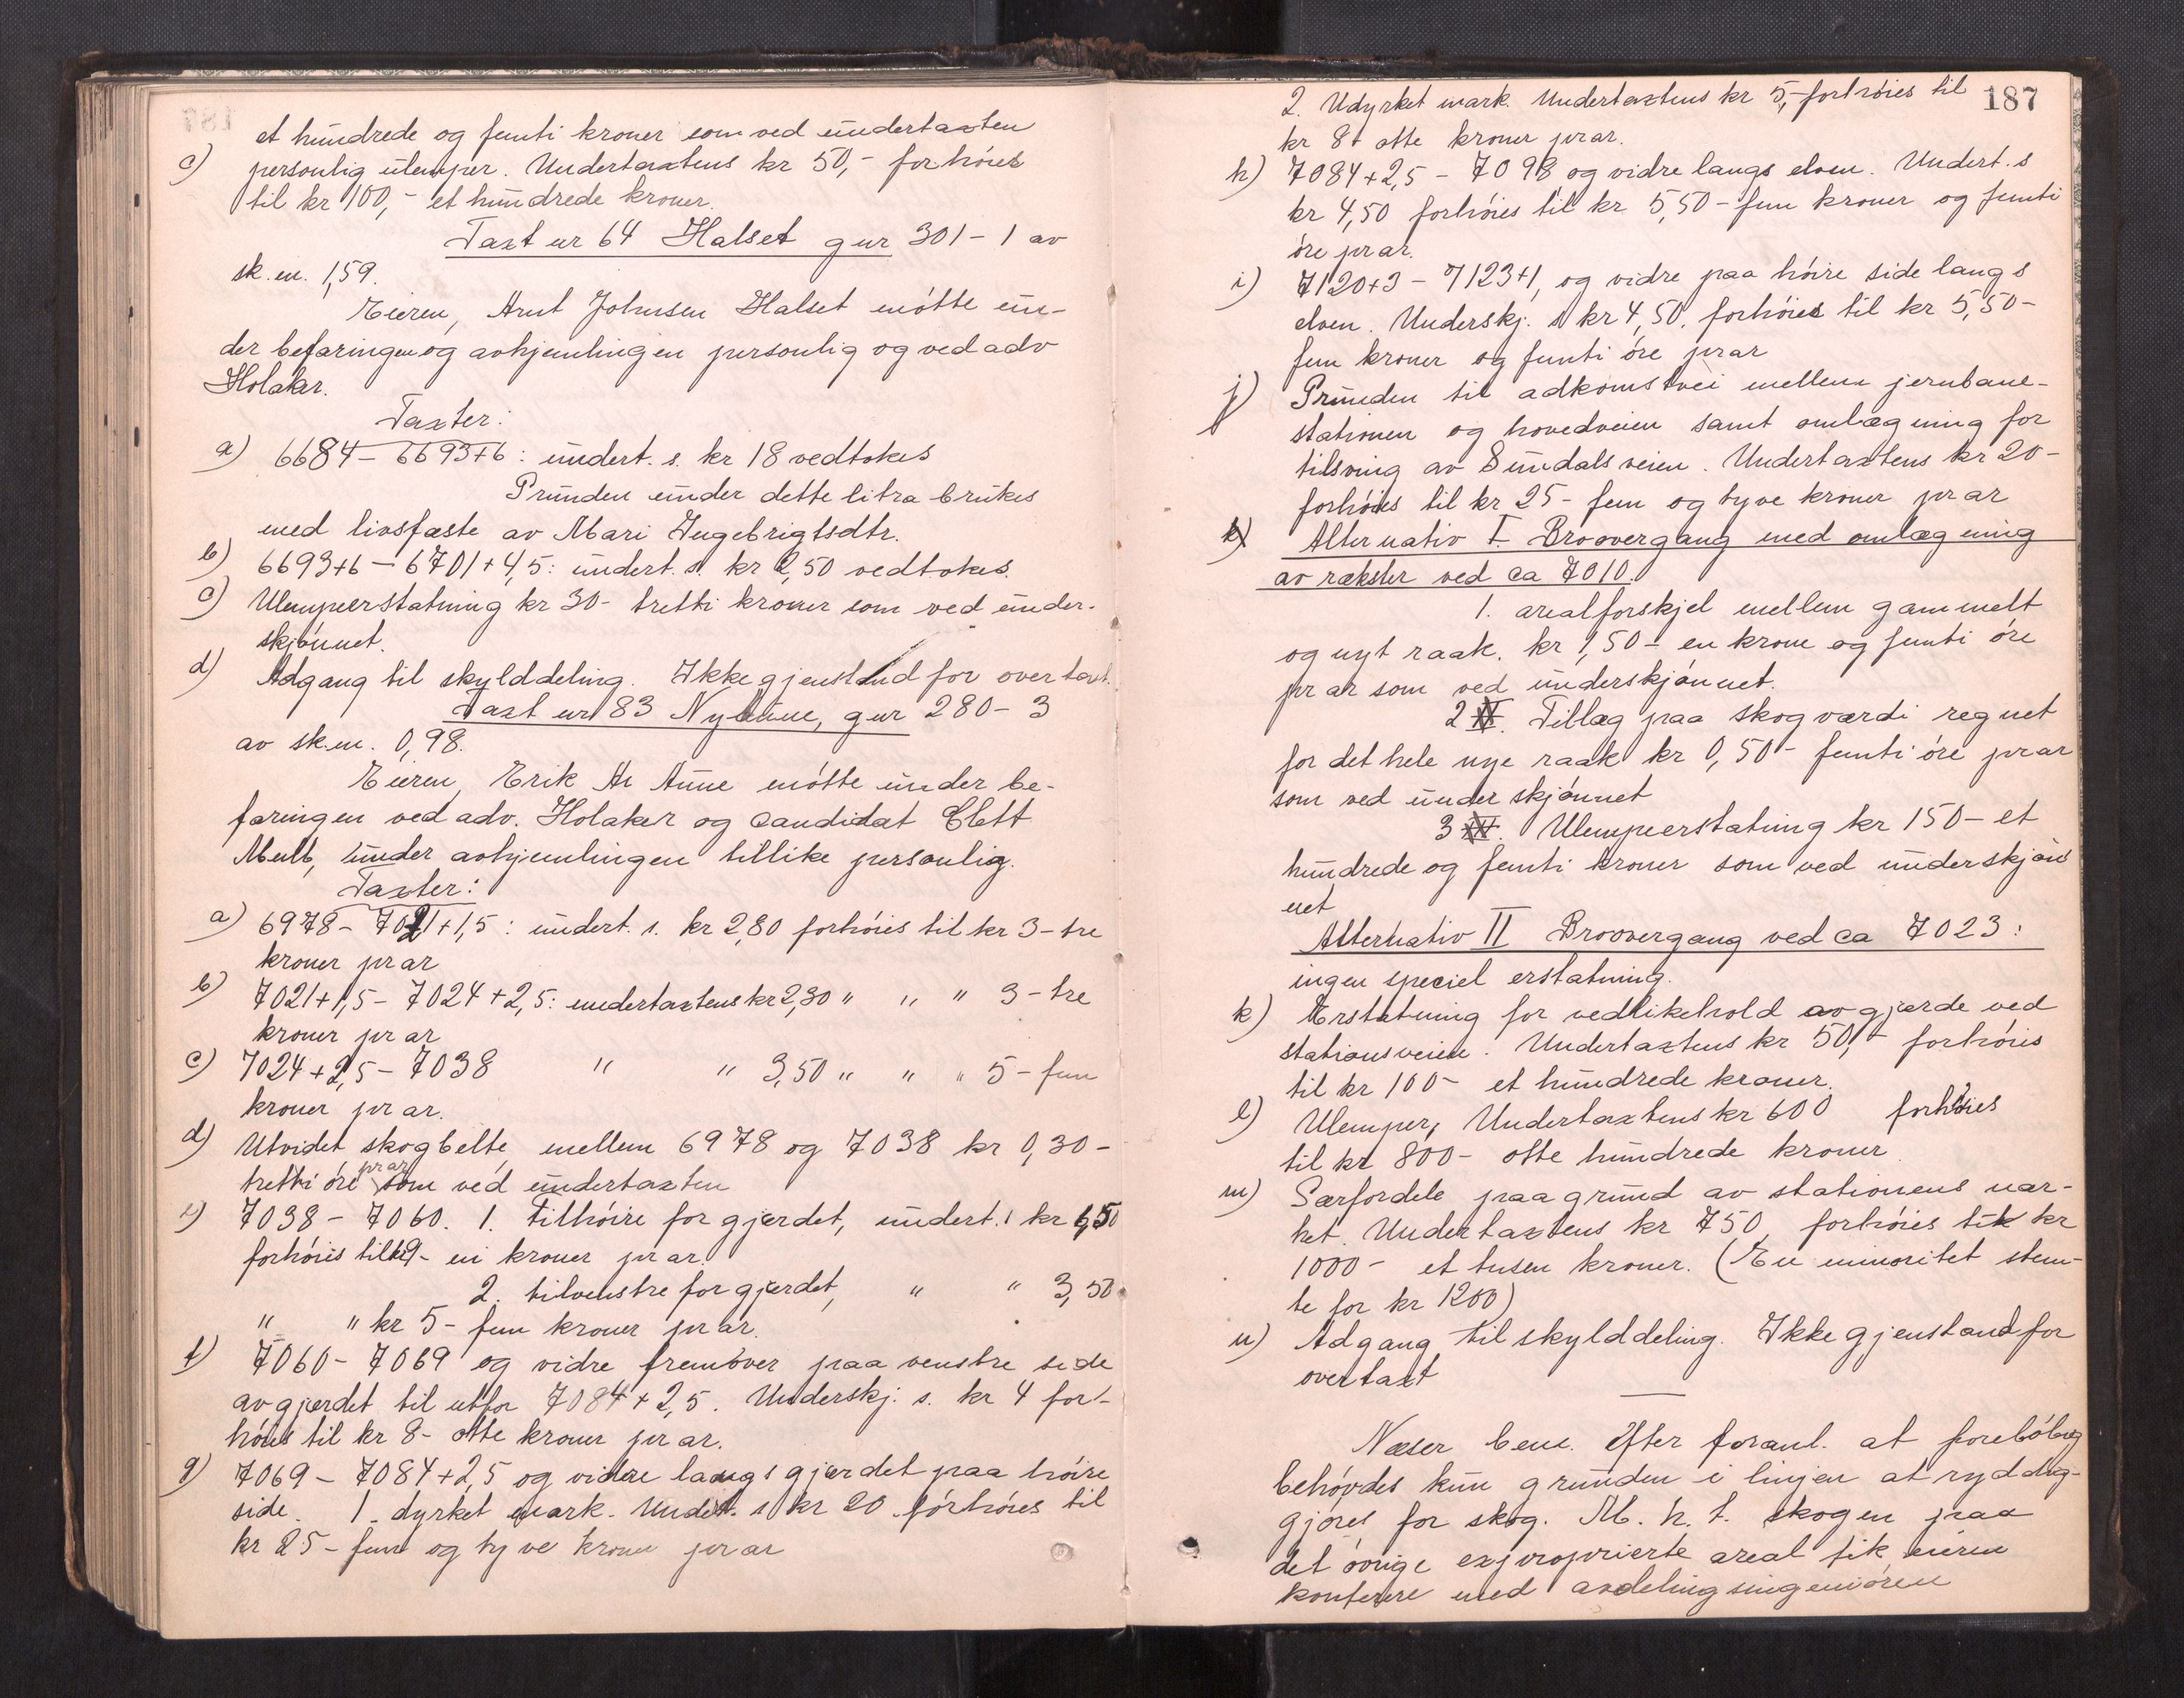 et hundrede og femti kroner som ved undertaxten
c) personlig ulemper. Undertaxtens kr 50,- forhöies
til kr 100,- et hundrede kroner.
Taxt nr 64 Halset gnr 301-1 av
sk.m. 1,59.
Eieren, Arnt Johnsen Halset mötte un-
der befaringen og avhjemlingen personlig og ved adv
Holaker.
Taxter:
a) 6684 - 6693+6: undert. s. kr 18 vedtokes
Grunden under dette litra brukes
med livsfæste av Mari Ingebrigtsdtr.
b) 6693+6 - 6701+4,5: undert. s. kr 2,50 vedtokes.
c) Ulempeerstatning kr 30- tretti kroner som ved under-
skjönnet.
d) Adgang til skylddeling. Ikke gjenstand for overtaxt.
Taxt nr 83 Nytune, gnr 280-3
av sk.m. 0,98.
Eieren, Erik Aune mötte under be-
faringen ved adv. Holaker og candidat Clett
under avhjemlingen tillike personlig.
Taxter:
a) 6978 - 7021+1,5: undert. s. kr 2,80 forhöies til kr 3- tre
kroner pr ar
b) 7021+1,5 - 7024+2,5: undertaxtens kr 2,30 " " " 3- tre
kroner pr ar
c) 7024+2,5 - 7038 " " 3,50 " " " 5- fem
kroner pr ar.
d) Utvidet skogbelte mellem 6978 og 7038 kr 0,30-
tretti öre pr ar som ved undertaxten
e) 7038 - 7060. 1. Tilhöire for gjerdet, undert. s kr 6,50
forhöies til kr 9- ni kroner pr ar.
2. tilvenstre for gjerdet, " " 3,50
" " kr 5- fem kroner pr ar.
f) 7060 - 7069 og vidre fremover paa venstre side
av gjerdet til utfor 7084+2,5. Underskj. s. kr 4 for-
höies til kr 8- otte kroner pr ar.
g) 7069 - 7084+2,5 og videre langs gjerdet paa höire
side. 1. dyrket mark. Undert. s kr 20 forhöies til
kr 25- fem og tyve kroner pr ar
187
2. Udyrket mark. Undertaxtens kr 5,- forhöies til
kr 8- otte kroner pr ar.
h) 7084+2,5 - 7098 og vidre langs elven. Undert. s
kr 4,50 forhöies til kr 5,50- fem kroner og femti
öre pr ar.
i) 7120+3 - 7123+1, og vidre paa höire side langs
elven. Underskj. s kr 4,50. forhöies til kr 5,50-
fem kroner og femti öre pr ar
j) Grunden til adkomstvei mellem jernbane-
stationen og hovedveien samt omlægning for
tilsving av Sundalsveien. Undertaxtens kr 20-
forhöies til kr 25- fem og tyve kroner pr ar
k) Alternativ I. Broovergang med omlægning
av rækster ved ca 7010.
1. arealforskjel mellem gammelt
og nyt raak. kr 1,50- en krone og femti öre
pr ar som ved underskjönnet.
2. Tillæg paa skogværdi regnet
for det hele nye raak kr 0,50- femti öre pr ar
som ved underskjönnet
3. Ulempeerstatning kr 150- et
hundrede og femti kroner som ved underskjön
net
Alternativ II Broovergang ved ca 7023:
ingen speciel erstatning.
k) Erstatning for vedlikehold av gjerde ved
stationsveien. Undertaxtens kr 50,- forhöies
til kr 100- et hundrede kroner.
l) Ulemper, Undertaxtens kr 600 forhöies
til kr 800- otte hundrede kroner.
m) Særfordele paa grund av stationens nær-
het. Undertaxtens kr 750, forhöies til kr
1000- et tusen kroner. (En minoritet stem-
te for kr 1200)
n) Adgang til skylddeling. Ikke gjenstand for
overtaxt
Næser bem. Efter foranl. at forelöbig
behövdes kun grunden i linjen at ryddig-
gjöres for skog. M. h. t. skogen paa
det övrige exproprierte areal fik eieren
konferere med avdelingsingeniören